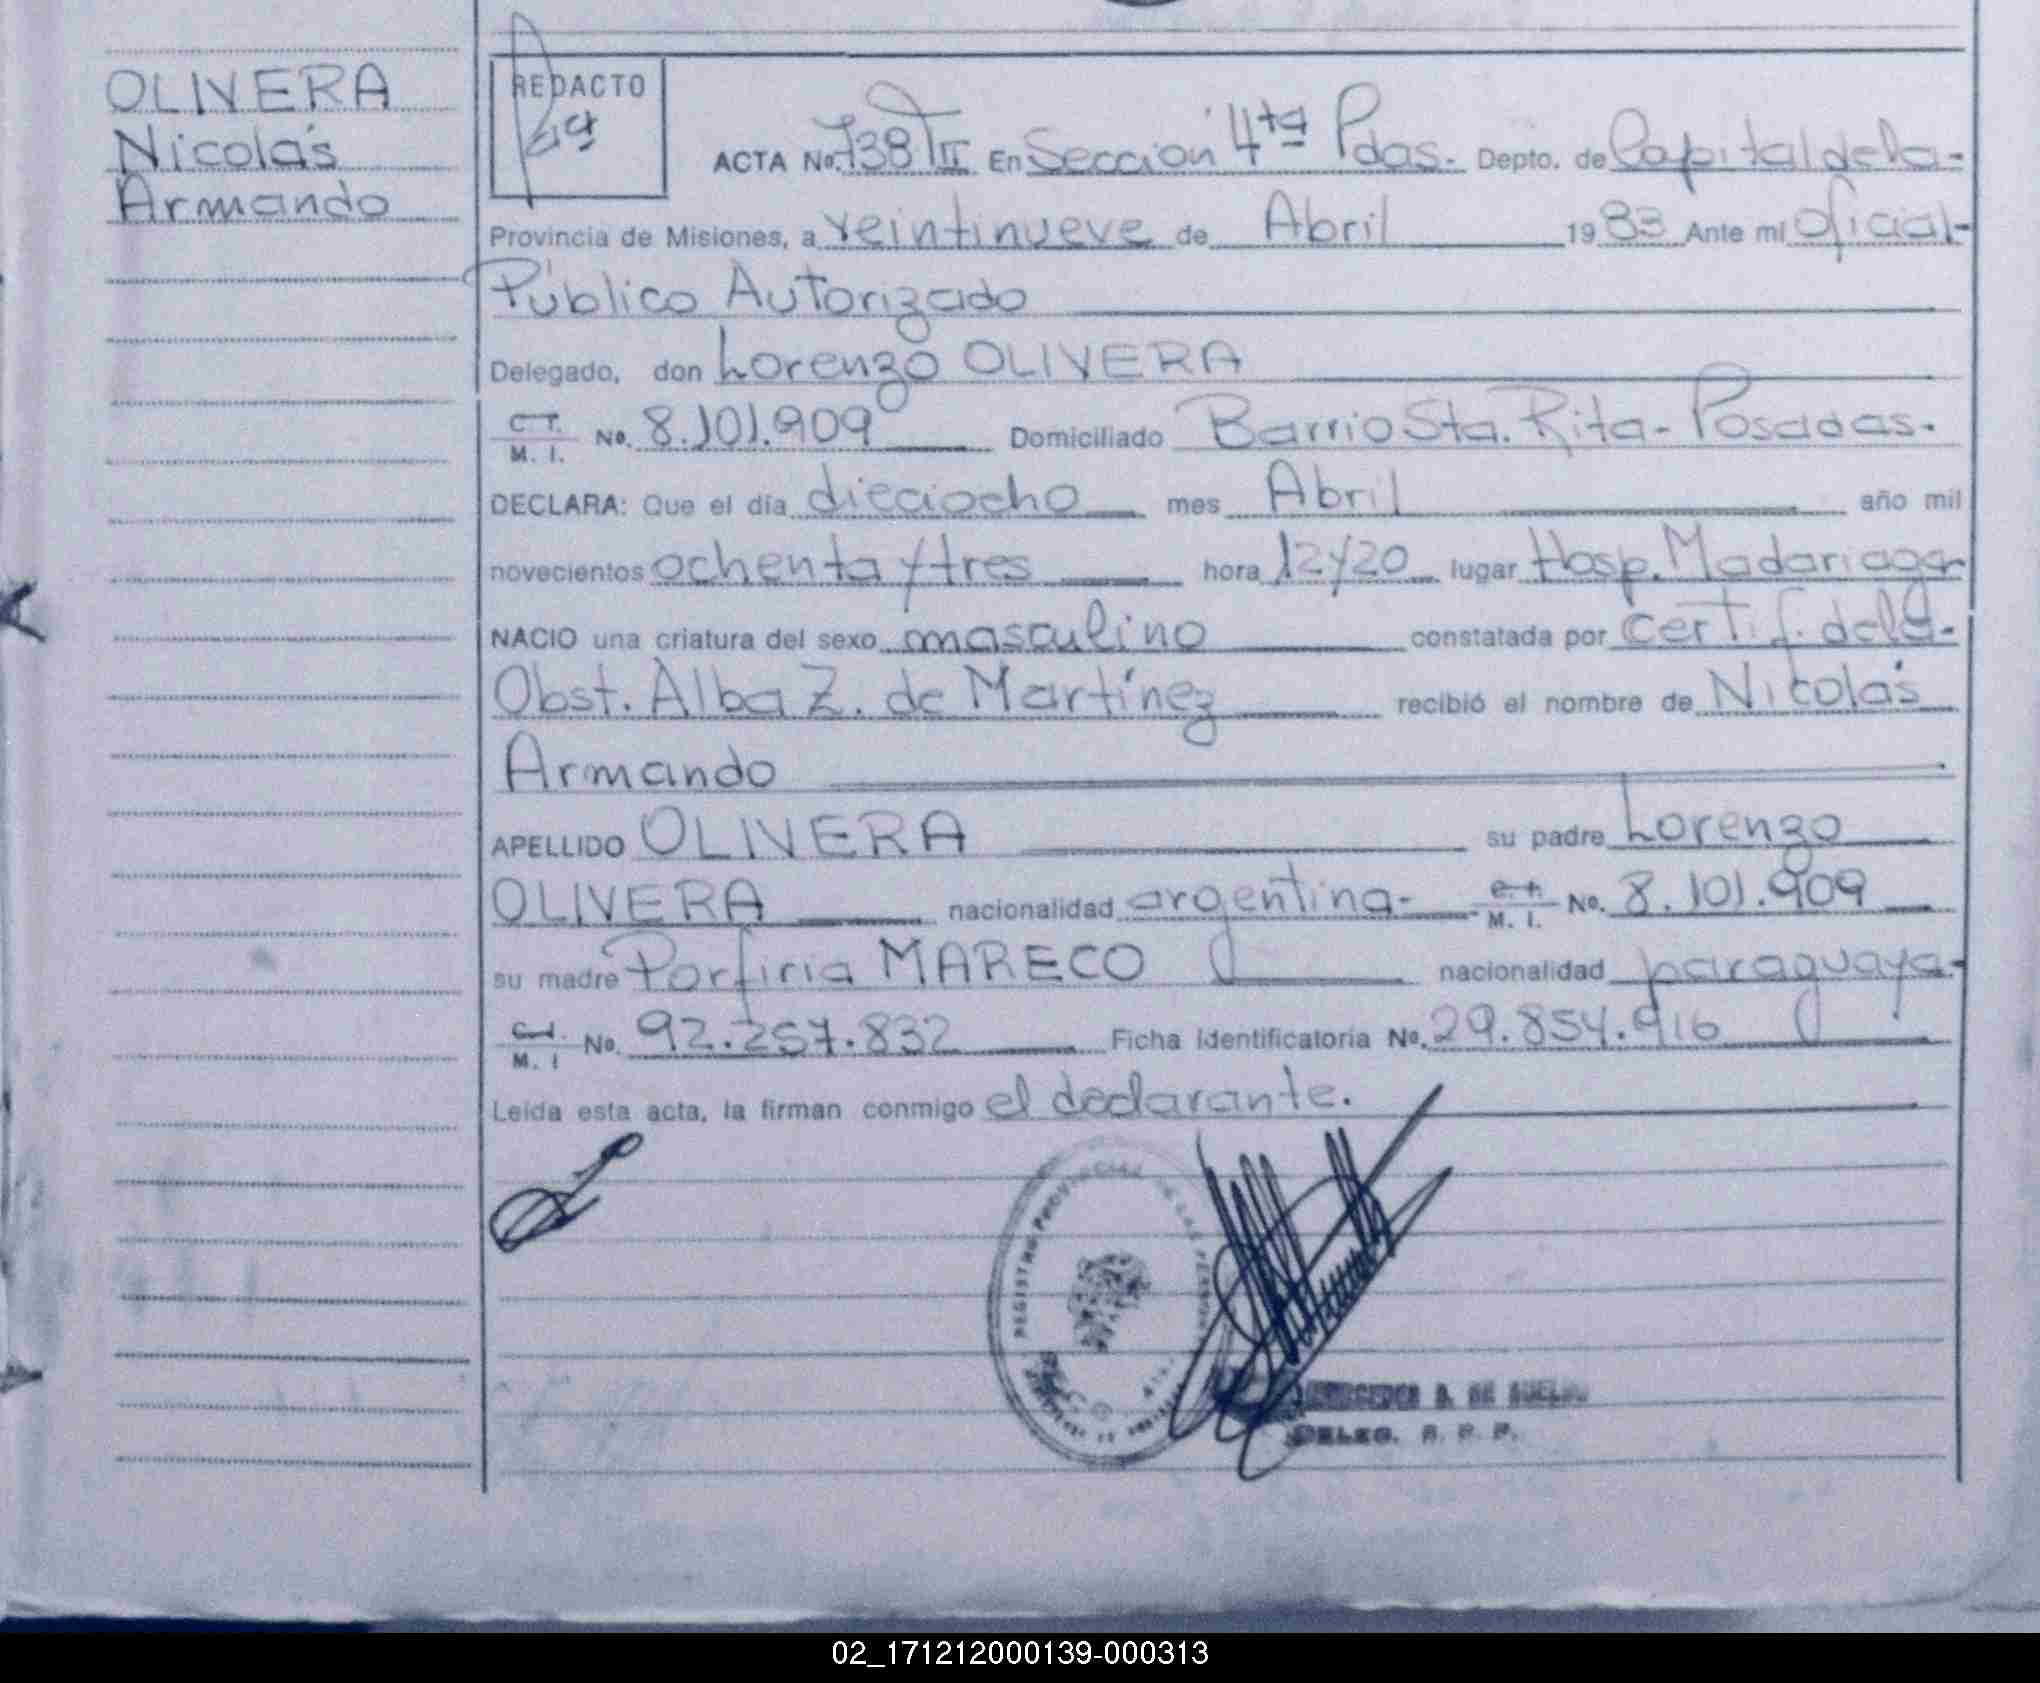 OLIVERA
Nicolás
Armando
REDACTO
ACTA No. 738 TII En Sección 4ta Pdas. Depto. de Capital de la-
Provincia de Misiones, a veintinueve de Abril 1983 Ante mi Oficial-
Público Autorizado
Delegado, don Lorenzo OLIVERA
C.I. M. I. No. 8.101.909 Domiciliado Barrio Sta. Rita- Posadas.
DECLARA: Que el día dieciocho mes Abril año mil
novecientos ochenta y tres hora 12y20 lugar Hosp. Madariaga
NACIO una criatura del sexo masculino constatada por certif. de la-
Obst. Alba Z. de Martínez recibió el nombre de Nicolás
Armando
APELLIDO OLIVERA su padre Lorenzo
OLIVERA nacionalidad argentina- C.I. M. I. No. 8.101.909
su madre Porfiria MARECO nacionalidad paraguaya-
C.I. M. I No. 92.257.832 Ficha Identificatoria No. 29.854.916
Leida esta acta, la firman conmigo el declarante.
REGISTRO PROVINCIAL DE LAS PERSONAS
DELEG. R. P. P.
02_171212000139-000313